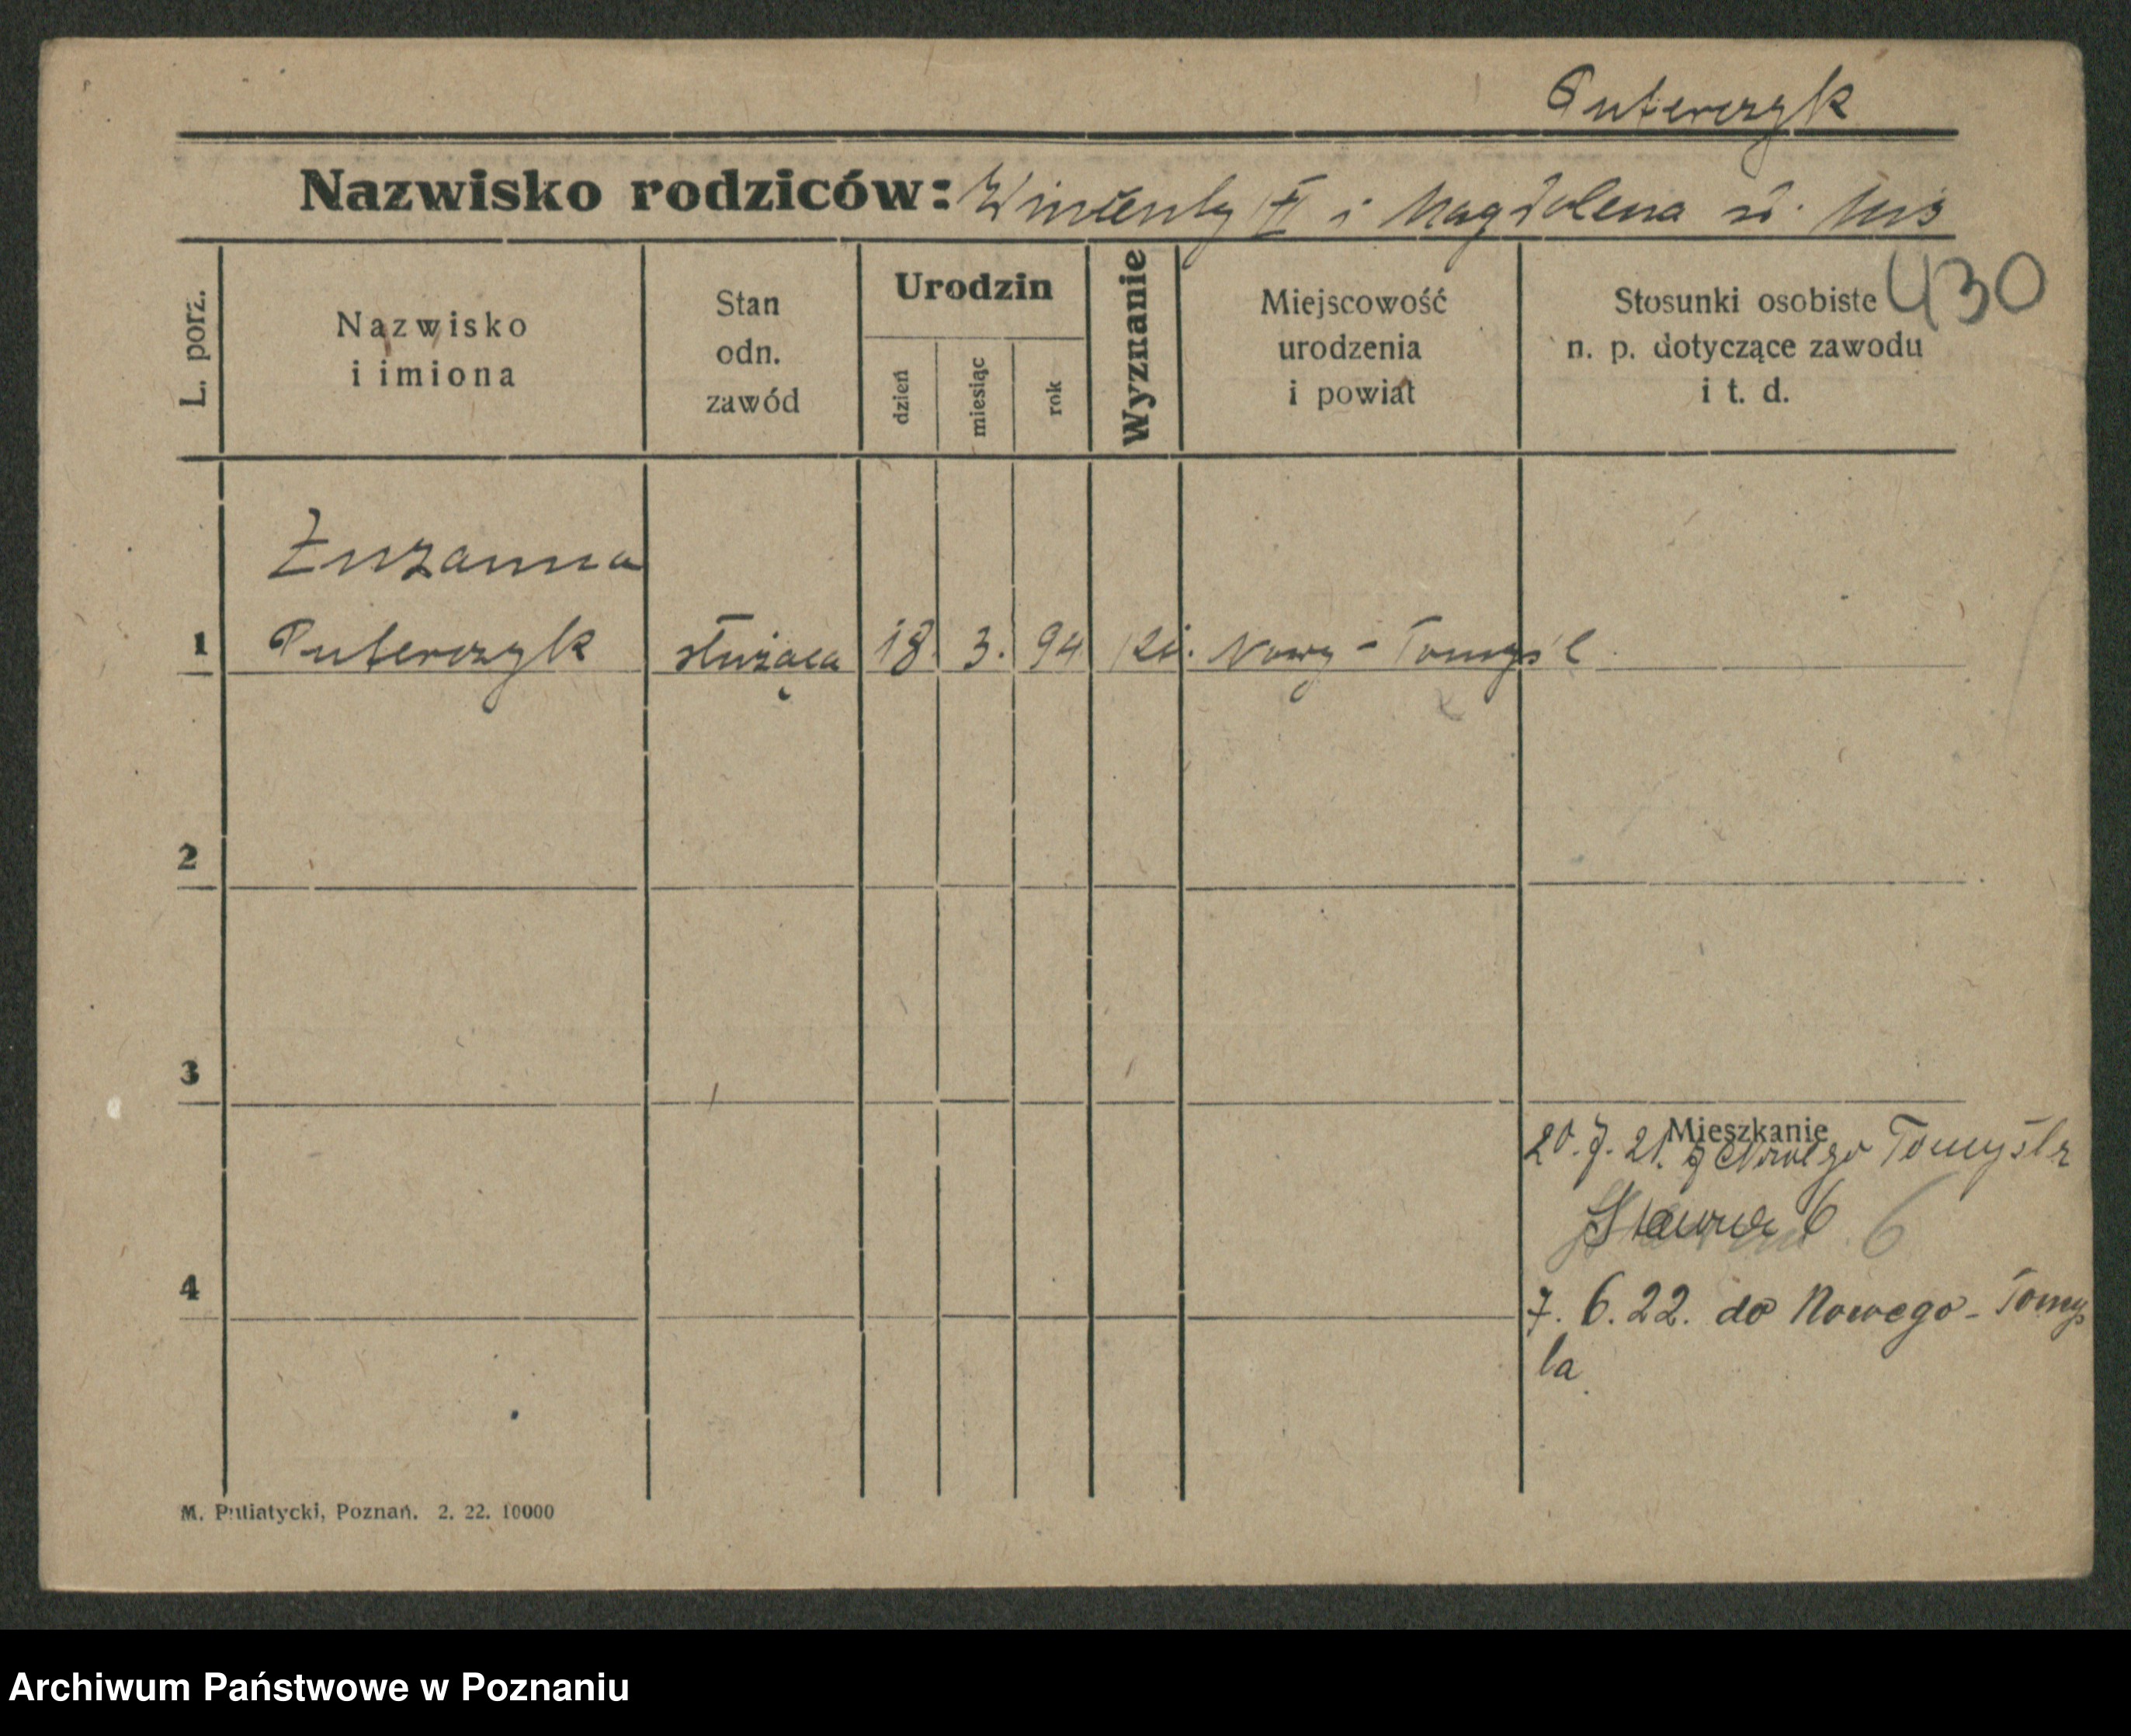 Puterczyk
Nazwisko rodziców: Wincenty II i Magdalena
430
L. porz.
Nazwisko
i imiona
Stan
odn.
zawód
Urodzin
dzień
miesiąc
rok
Wyznanie
Miejscowość
urodzenia
i powiat
Stosunki osobiste
n. p. dotyczące zawodu
i t. d.
Zuzanna
1 Puterczyk służąca 18. 3. 94 Nowy-Tomyśl
2
3
Mieszkanie
20. 7. 21. z Nowego Tomyśla
6 6
4
7. 6. 22. do Nowego-Tomyś
la
M. Putiatycki, Poznań. 2. 22. 10000
Archiwum Państwowe w Poznaniu